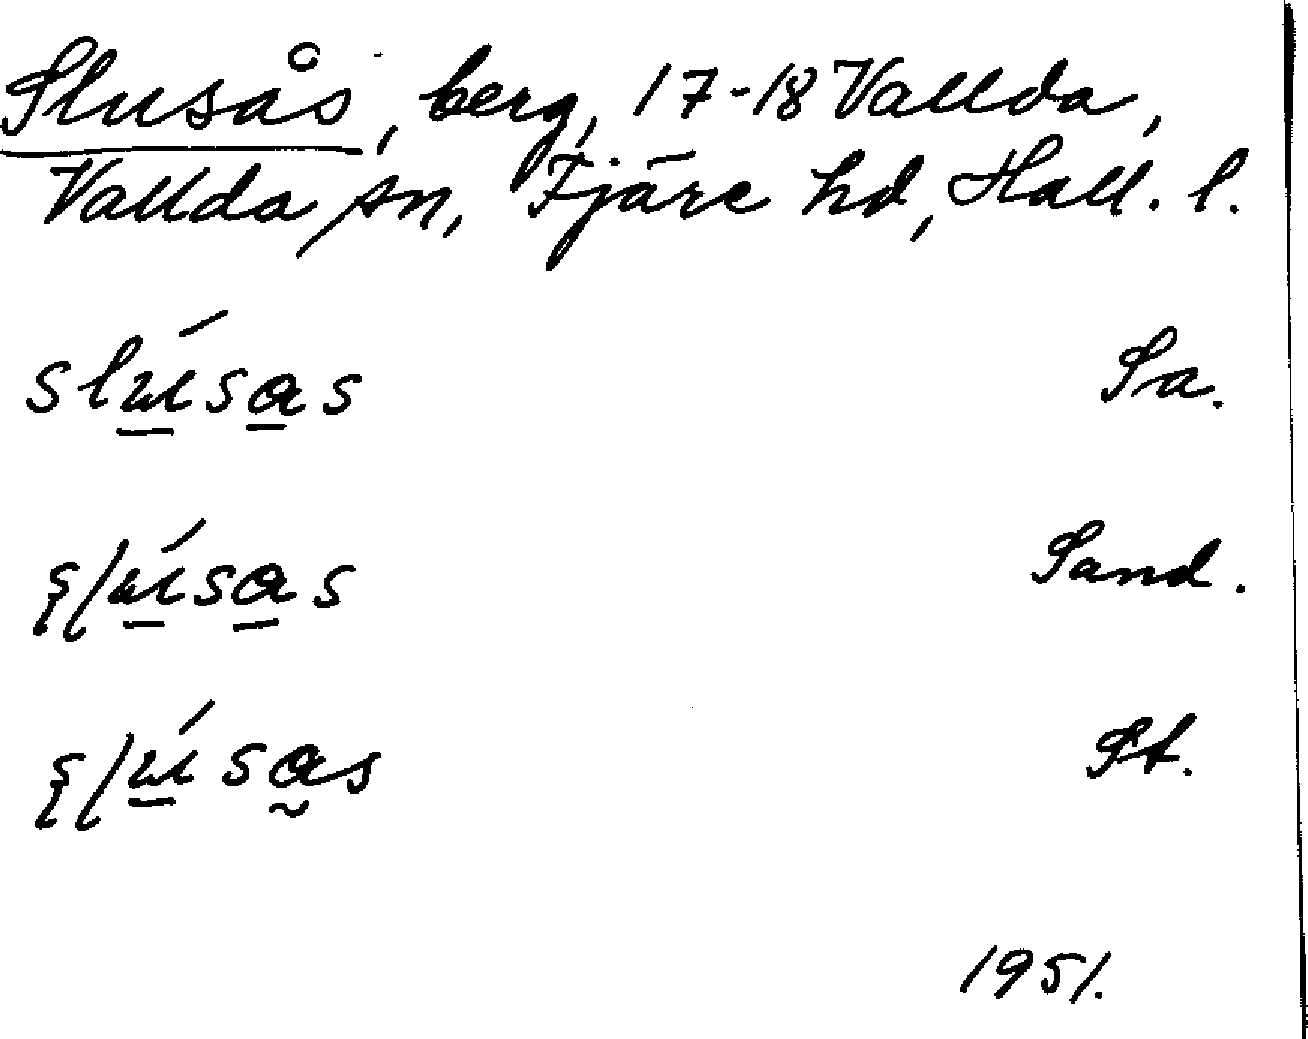 Slusås, berg, 17-18 Vallda,
Vallda sn, Fjäre hd, Hall. l.
slu̲ísa̲s Sa.
ʂɭu̲ísa̲s Sand.
ʂɭu̲ísa̰s St.
1951.